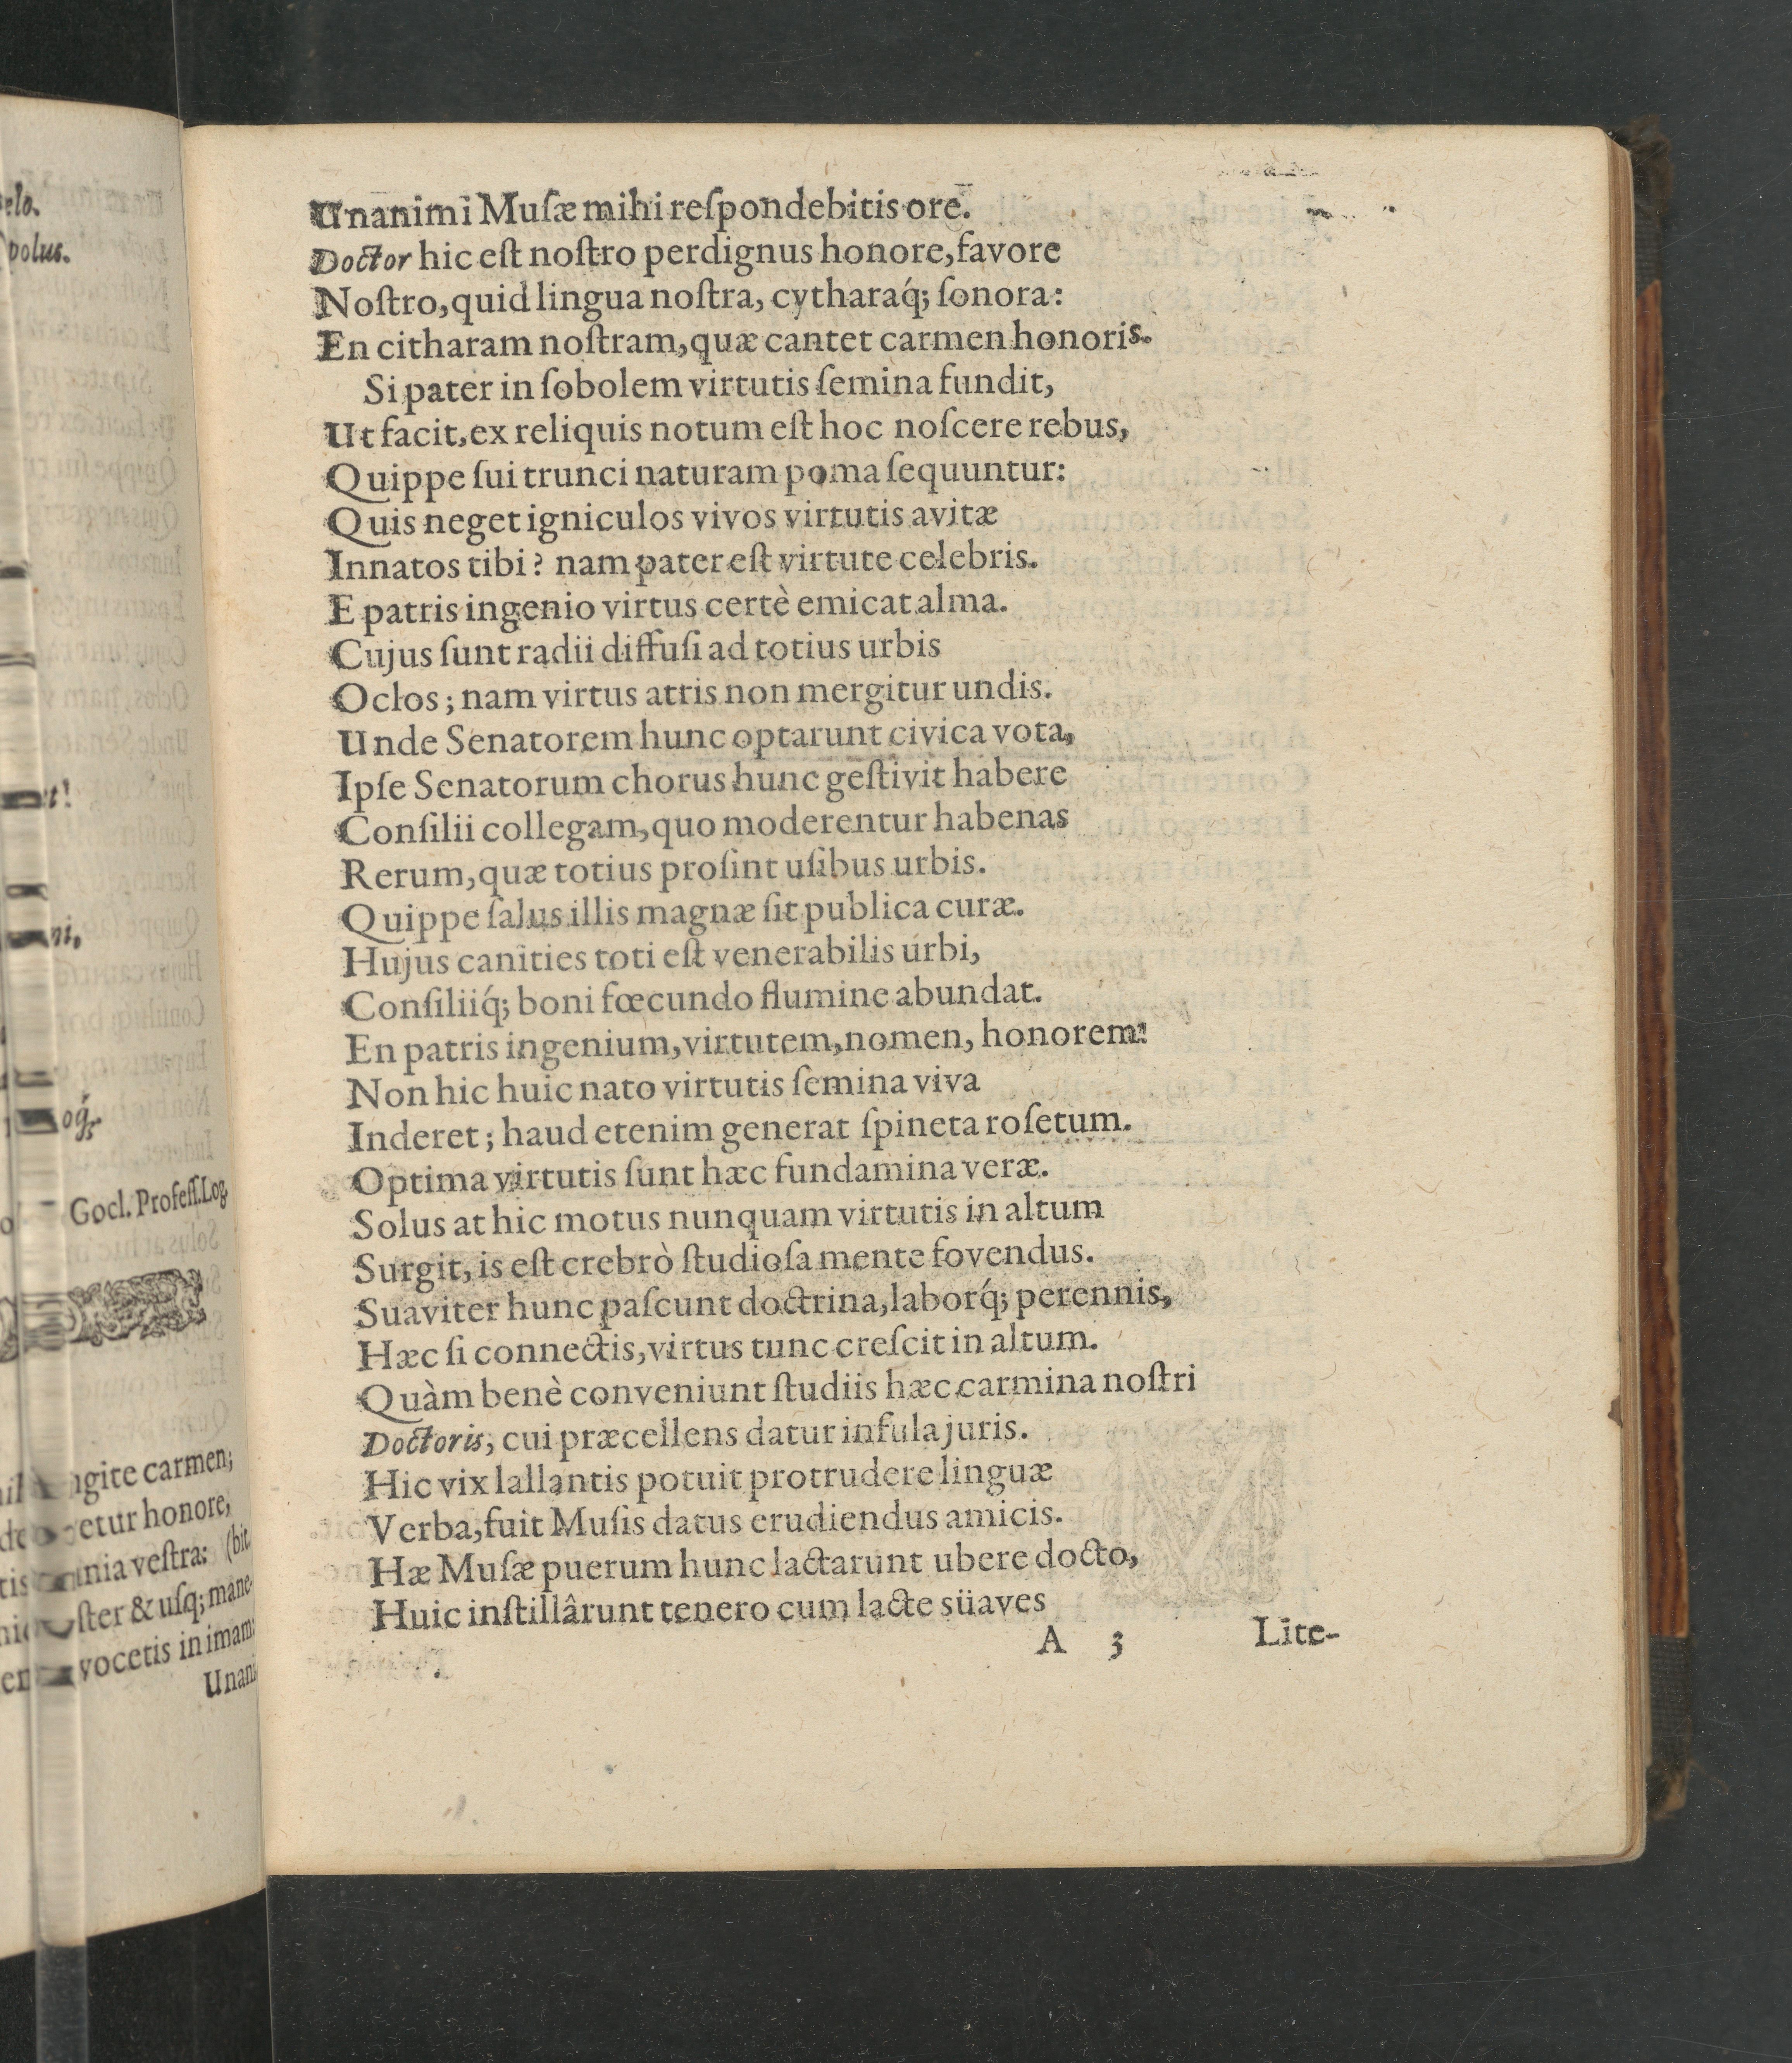 elo.
polus.
t!
ni,
oq́;
Gocl. Profeſſ. Log.
ngite carmen;
etur honore,
tis omnia veſtra: (bit.
ſter & uſq; mane-
vocetis in imam:
Unani
Unanimi Muſæ mihi reſpondebitis ore.
Doctor hic eſt noſtro perdignus honore, favore
Noſtro, quid lingua noſtra, cytharaq́; ſonora:
En citharam noſtram, quæ cantet carmen honoris.
Si pater in ſobolem virtutis ſemina fundit,
Ut facit, ex reliquis notum eſt hoc noſcere rebus,
Quippe ſui trunci naturam poma ſequuntur:
Quis neget igniculos vivos virtutis avitæ
Innatos tibi? nam pater eſt virtute celebris.
E patris ingenio virtus certè emicat alma.
Cujus ſunt radii diffuſi ad totius urbis
Oclos; nam virtus atris non mergitur undis.
Unde Senatorem hunc optarunt civica vota,
Ipſe Senatorum chorus hunc geſtivit habere
Conſilii collegam, quo moderentur habenas
Rerum, quæ totius proſint uſibus urbis.
Quippe ſalus illis magnæ ſit publica curæ.
Hujus canities toti eſt venerabilis urbi,
Conſiliiq́; boni fœcundo flumine abundat.
En patris ingenium, virtutem, nomen, honorem!
Non hic huic nato virtutis ſemina viva
Inderet; haud etenim generat ſpineta roſetum.
Optima virtutis ſunt hæc fundamina veræ.
Solus at hic motus nunquam virtutis in altum
Surgit, is eſt crebrò ſtudioſa mente fovendus.
Suaviter hunc paſcunt doctrina, laborq́; perennis,
Hæc ſi connectis, virtus tunc creſcit in altum.
Quàm benè conveniunt ſtudiis hæc carmina noſtri
Doctoris, cui præcellens datur infula juris.
Hic vix lallantis potuit protrudere linguæ
Verba, fuit Muſis datus erudiendus amicis.
Hæ Muſæ puerum hunc lactarunt ubere docto,
Huic inſtillârunt tenero cum lacte süaves
A 3 Lite-